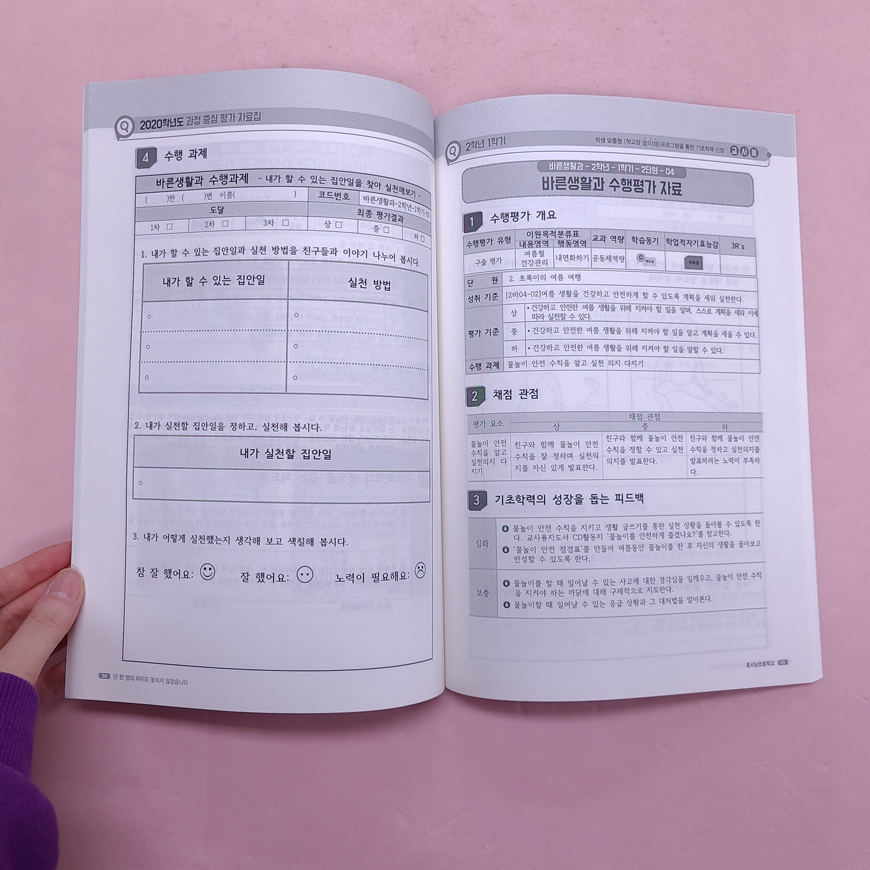 2020학년도 과정 중심 평가 자료집
4 수행 과제
바른생활과 수행과제 - 내가 할 수 있는 집안일을 찾아 실천해보기 -
( )반 ( )번 이름( ) 코드번호 바른생활과-2학년-1학기-
도달 최종 평가결과
1차 □ 2차 □ 3차 □ 상 □ 중 □ 하 □
1. 내가 할 수 있는 집안일과 실천 방법을 친구들과 이야기 나누어 봅시다.
내가 할 수 있는 집안일 실천 방법
○ ○
○ ○
○ ○
2. 내가 실천할 집안일을 정하고, 실천해 봅시다.
내가 실천할 집안일
○
3. 내가 어떻게 실천했는지 생각해 보고 색칠해 봅시다.
참 잘 했어요: 잘 했어요: 노력이 필요해요:
38 단 한 명의 아이도 놓치지 않겠습니다
2학년 1학기
학생 맞춤형 (학교장 염(이)프로그램을 통한 기초학력 신장 교사용
바른생활과 - 2학년 - 1학기 - 2단원 - 04
바른생활과 수행평가 자료
1 수행평가 개요
수행평가 유형 이원목적분류표 교과 역량 학습동기 학업적자기효능감 3R's
내용영역 행동영역
구술 평가 여름철 건강관리 내면화하기 공동체역량
단 원 2. 초록이의 여름 여행
성취 기준 [2바04-02]여름 생활을 건강하고 안전하게 할 수 있도록 계획을 세워 실천한다.
평가 기준
상 • 건강하고 안전한 여름 생활을 위해 지켜야 할 일을 알며, 스스로 계획을 세워 이에
따라 실천할 수 있다.
중 • 건강하고 안전한 여름 생활을 위해 지켜야 할 일을 알고 계획을 세울 수 있다.
하 • 건강하고 안전한 여름 생활을 위해 지켜야 할 일을 말할 수 있다.
수행 과제 물놀이 안전 수칙을 알고 실천 의지 다지기
2 채점 관점
평가 요소 채점 관점
상 중 하
물놀이 안전
수칙을 알고
실천의지 다
지기
친구와 함께 물놀이 안전
수칙을 잘 정하며 실천의
지를 자신 있게 발표한다.
친구와 함께 물놀이 안전
수칙을 정할 수 있고 실천
의지를 발표한다.
친구와 함께 물놀이 안전
수칙을 정하고 실천의지를
발표하려는 노력이 부족하
다.
3 기초학력의 성장을 돕는 피드백
심화
물놀이 안전 수칙을 지키고 생활 글쓰기를 통한 실천 상황을 돌아볼 수 있도록 한
다. 교사용지도서 CD활동지 '물놀이를 안전하게 즐겼나요?'를 참고한다.
'물놀이 안전 점검표'를 만들어 여름동안 물놀이를 한 후 자신의 생활을 돌아보고
반성할 수 있도록 한다.
보충
물놀이를 할 때 일어날 수 있는 사고에 대한 경각심을 일깨우고, 물놀이 안전 수칙
을 지켜야 하는 까닭에 대해 구체적으로 지도한다.
물놀이할 때 일어날 수 있는 응급 상황과 그 대처법을 알아본다.
호서남초등학교